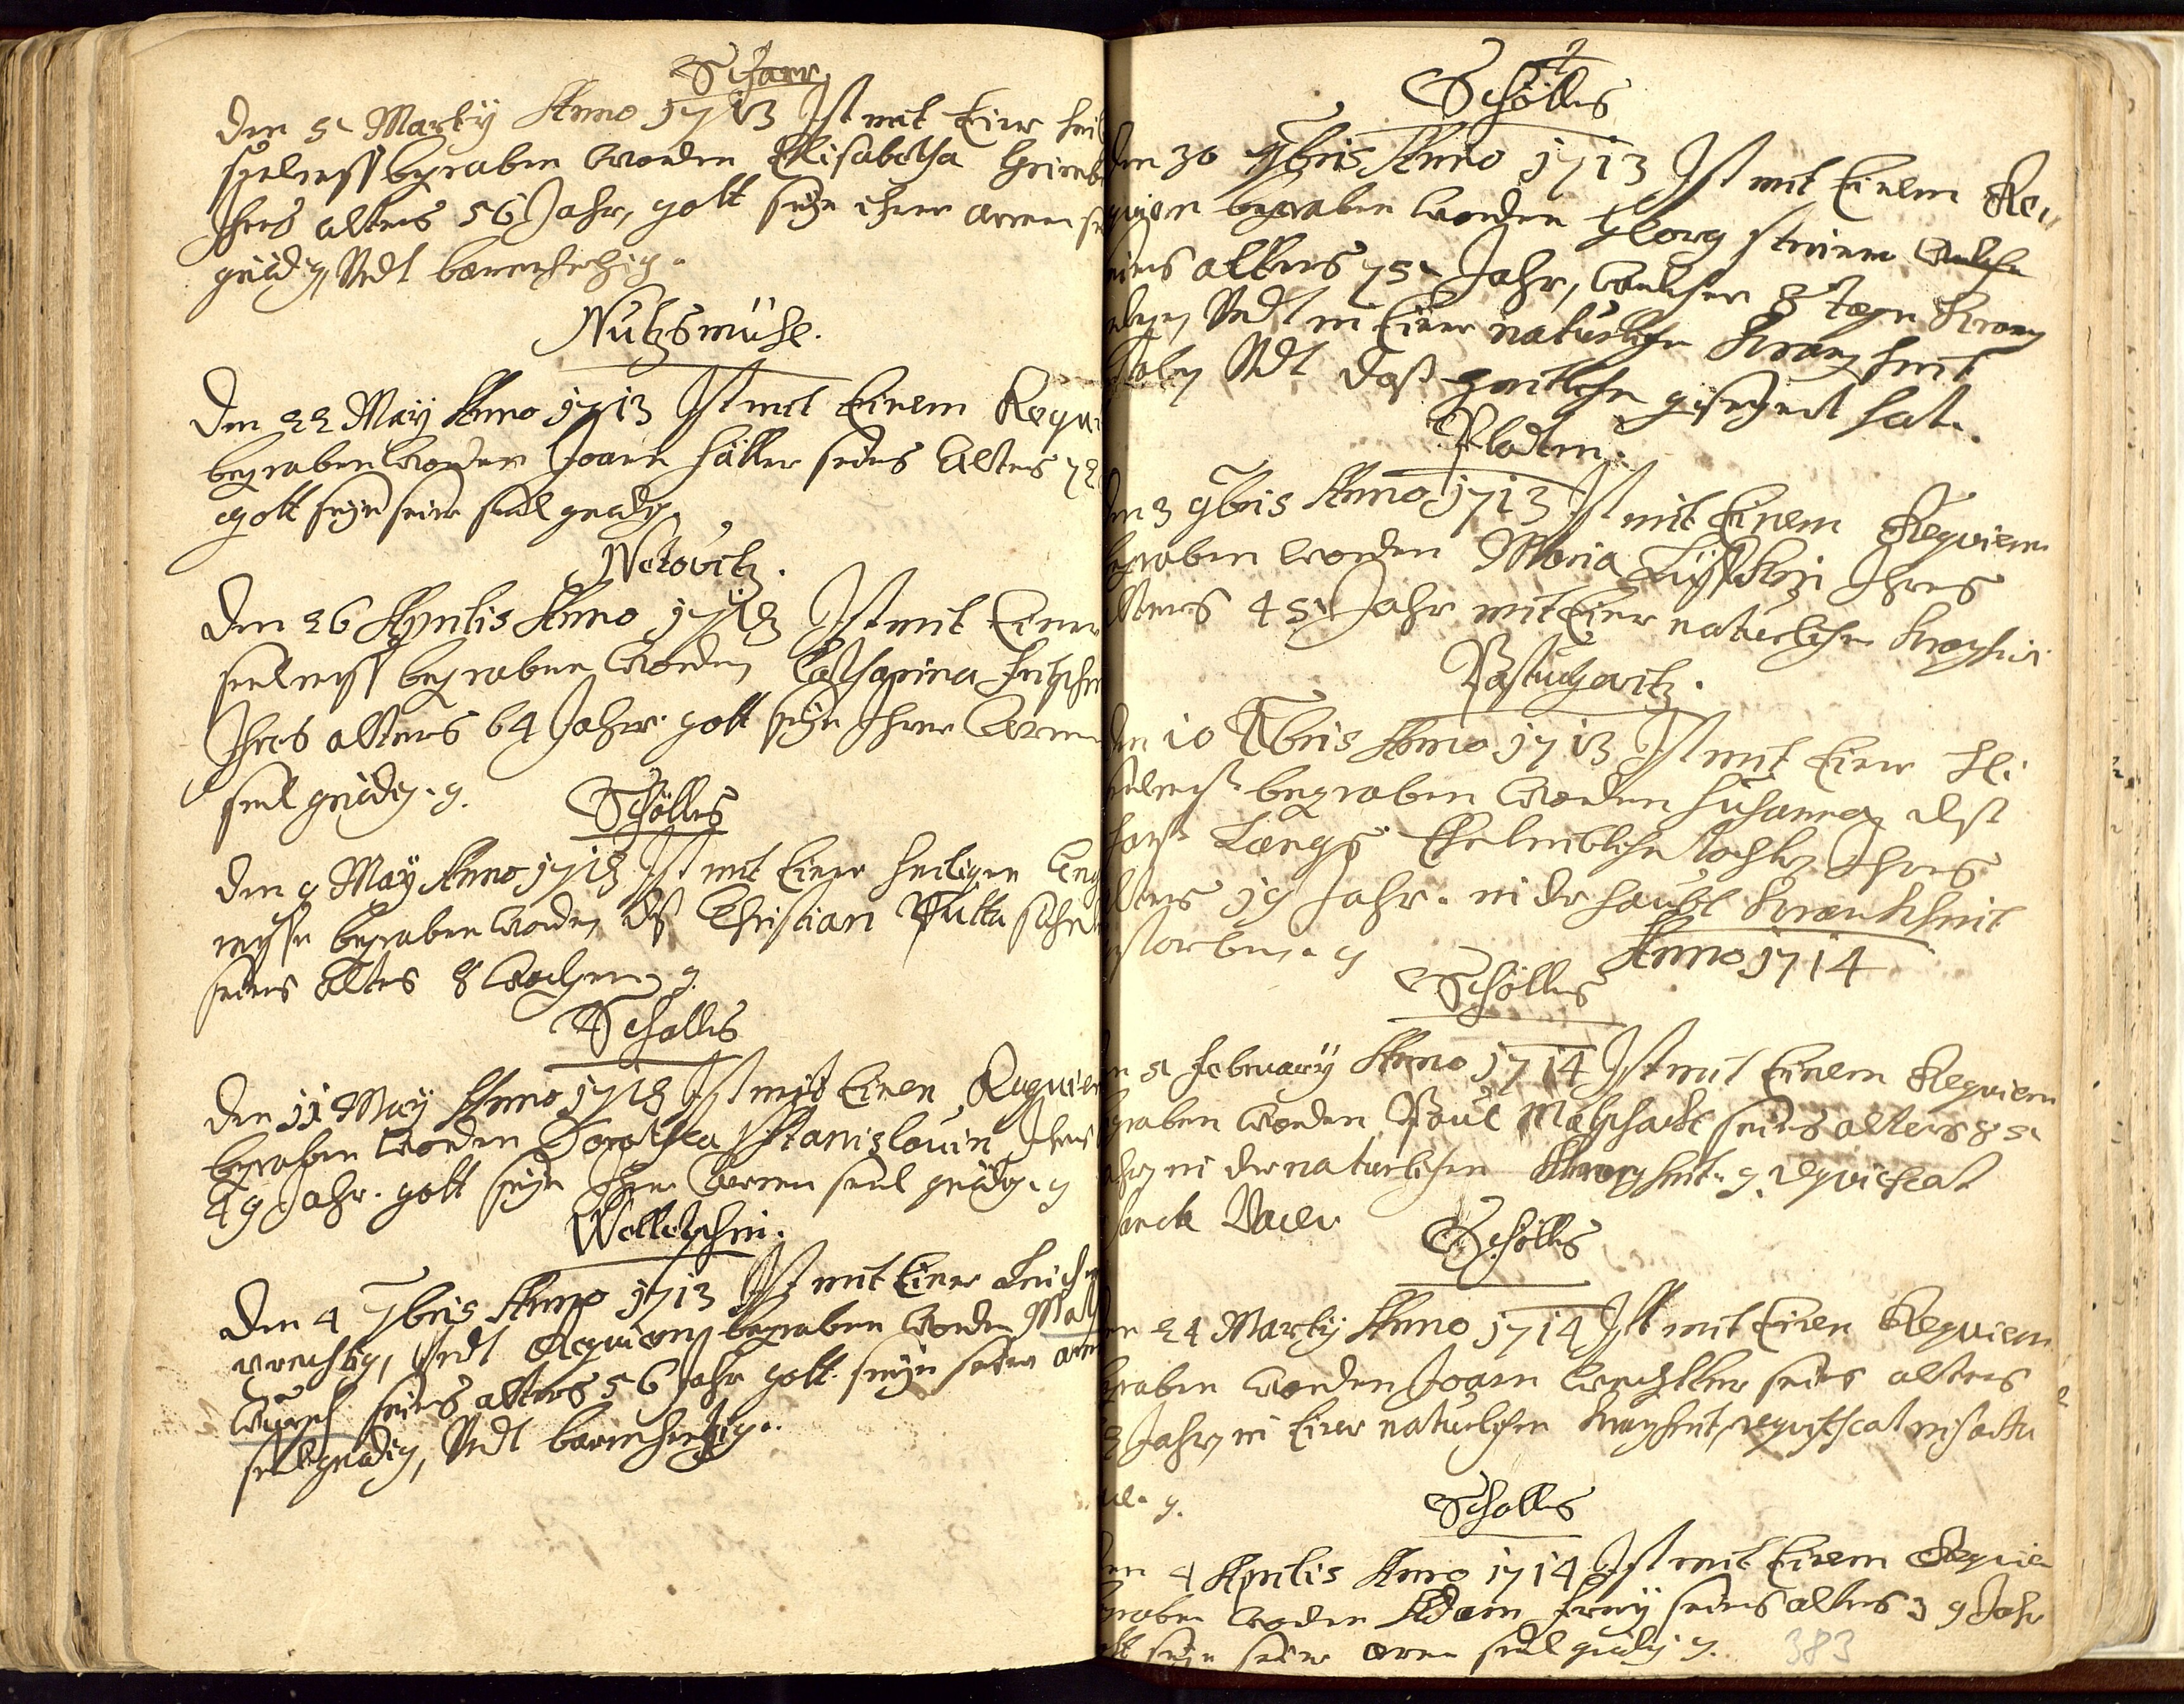 Scharr
Den 5 Marty Anno 1713 Ist mit Einer heil
seelmeß begraben worden Elisabetha
Ihres alters 56 Jahr, gott seye ihrer armen se
gnädig, Undt barmhertzig.
Nutzsmühl.
Den 22 May Anno 1713 Ist mit Einem Requi
begraben worden Joann Häller seines alters 72
gott seye seiner seel gnädig.
Netovitz.
Den 26 Aprilis Anno 1713 Ist mit Einer
seelmeß begraben worden Catharina
Ihres alters 64 Jahr gott seye Ihrer armen
seel gnädig. g.
Schölles
Den 9 May Anno 1713 Ist mit Einer heiligen Eng
meßse begraben worden deß Christian Putta söhnl
seines alters 8 wochen g.
Schölles
Den 11 May Anno 1713 Ist mit Einen Requiem
begraben worden Dorothea Stanislouin Ihres
49 Jahr. gott seye Ihrer armen seel gnädig. g
Welletschin.
Den 4 7bris Anno 1713 Ist mit Einer Leich
Undt Requiem begraben worden Mat
seines alters 56 Jahr gott seye seiner arm
seel gnädig, Undt barmhertzig.
Schölles
den 30 7bris Anno 1713 Ist mit Einem Re
quiem begraben worden Georg seines
seines alters 75 Jahr, welcher 8 tage Kranck
Undt in Einer naturlichen Kranckheit
Undt daß zeitliche geseegnet hat.
Pladen.
den 3 9bris Anno 1713 Ist mit Einem Requiem
begraben worden Maria Ihres
alters 45 Jahr mit Einer naturlichen Kranckheit
Pastuchovitz.
den 10 Xbris Anno 1713 Ist mit Einer Hl:
seelmeß begraben worden Susanna deß
Eheleibliche tochter Ihres
alters 19 Jahr. in der haubt Kranckheit
gestorben. g
Anno 1714
Schölles
den 5 february Anno 1714 Ist mit Einem Requiem
begraben worden Paul seines alters 85
Jahr in der naturlichen Kranckheit. g. requiescat
Pace.
Schölles
den 24 Marty Anno 1714 Ist mit Einen Requiem
begraben worden Joann seines alters
Jahr, in Einer naturlichen Kranckheit, requiescat
g.
Schölles
den 4 Aprilis Anno 1714 Ist mit Einem Requiem
begraben worden Adam frey seines alters 39 Jahr
gott seye seiner armen seel gnädig g.
383